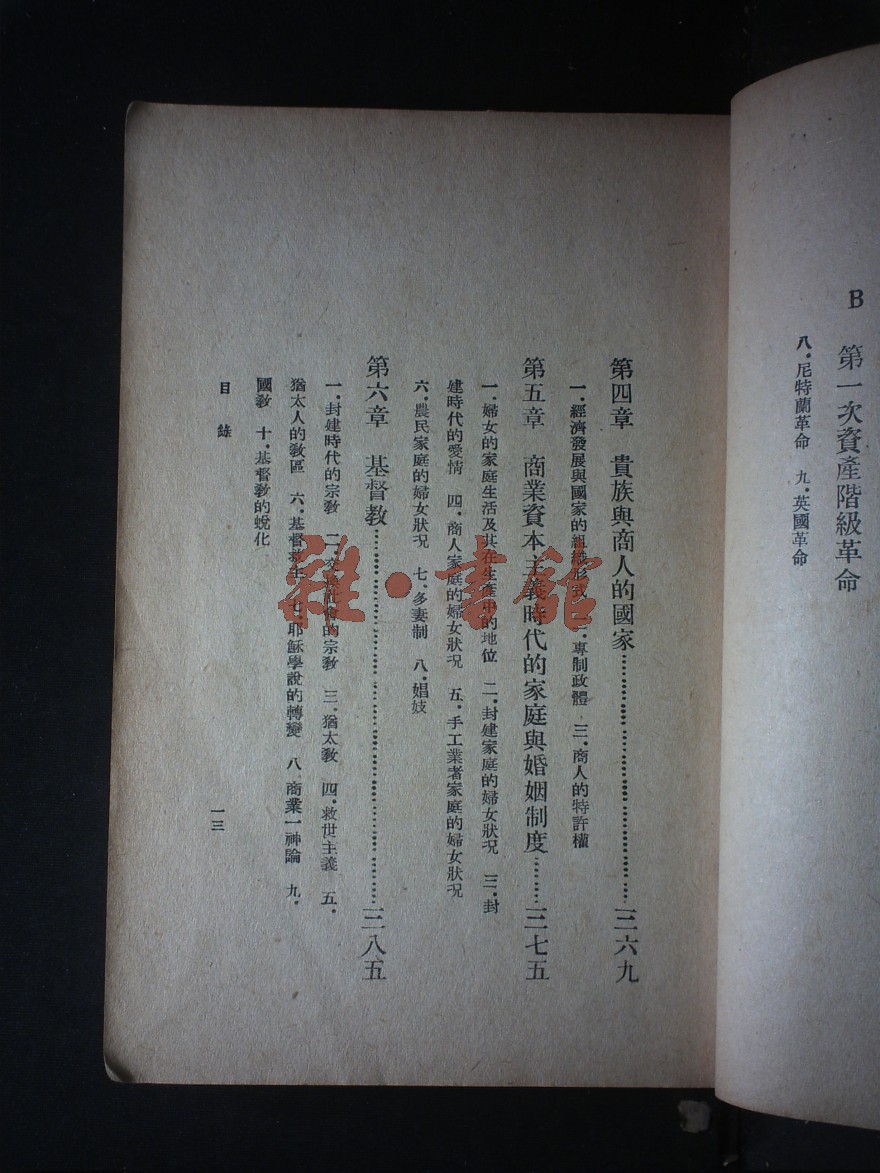 B 第一次資產階級革命
八．尼特蘭革命 九．英國革命
第四章 貴族與商人的國家……三六九
一．經濟發展與國家的組織形式 二．專制政體 三．商人的特許權
第五章 商業資本主義時代的家庭與婚姻制度……三七五
一．婦女的家庭生活及其在生產中的地位 二．封建家庭的婦女狀況 三．封
建時代的愛情 四．商人家庭的婦女狀況 五．手工業者家庭的婦女狀況
六．農民家庭的婦女狀況 七．多妻制 八．娼妓
第六章 基督教……三八五
一．封建時代的宗教 二．交換社會的宗教 三．猶太教 四．救世主義 五．
猶太人的教區 六．基督救主 七．耶穌學說的轉變 八．商業一神論 九．
國教 十．基督教的蛻化
目錄
一三
雜·書館